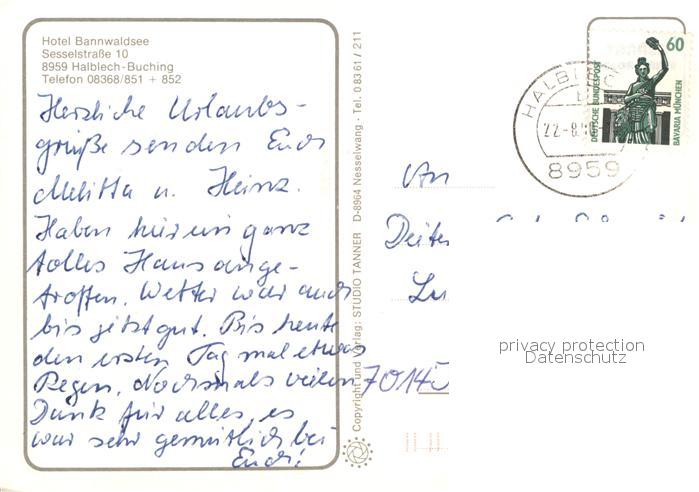 Hotel Bannwaldsee
Sesselstraße 10
8959 Halblech-Buching
Telefon 08368/851 + 852
Herzliche Urlaubs-
grüße senden Euch
Melitta u. Heinz.
Haben hier ein ganz
tolles Haus ange-
troffen. Wetter war auch
bis jetzt gut. Bis heute
den ersten Tag mal etwas
Regen. Nochmals vielen
Dank für alles, es
war sehr gemütlich bei
Euch!
Copyright und Verlag: STUDIO TANNER D-8964 Nesselwang · Tel. 0 83 61 / 211
60
DEUTSCHE BUNDESPOST
BAYARIA MÜNCHEN
HALBLEC
22.-8.
8959
An
7014
privacy protection
Datenschutz